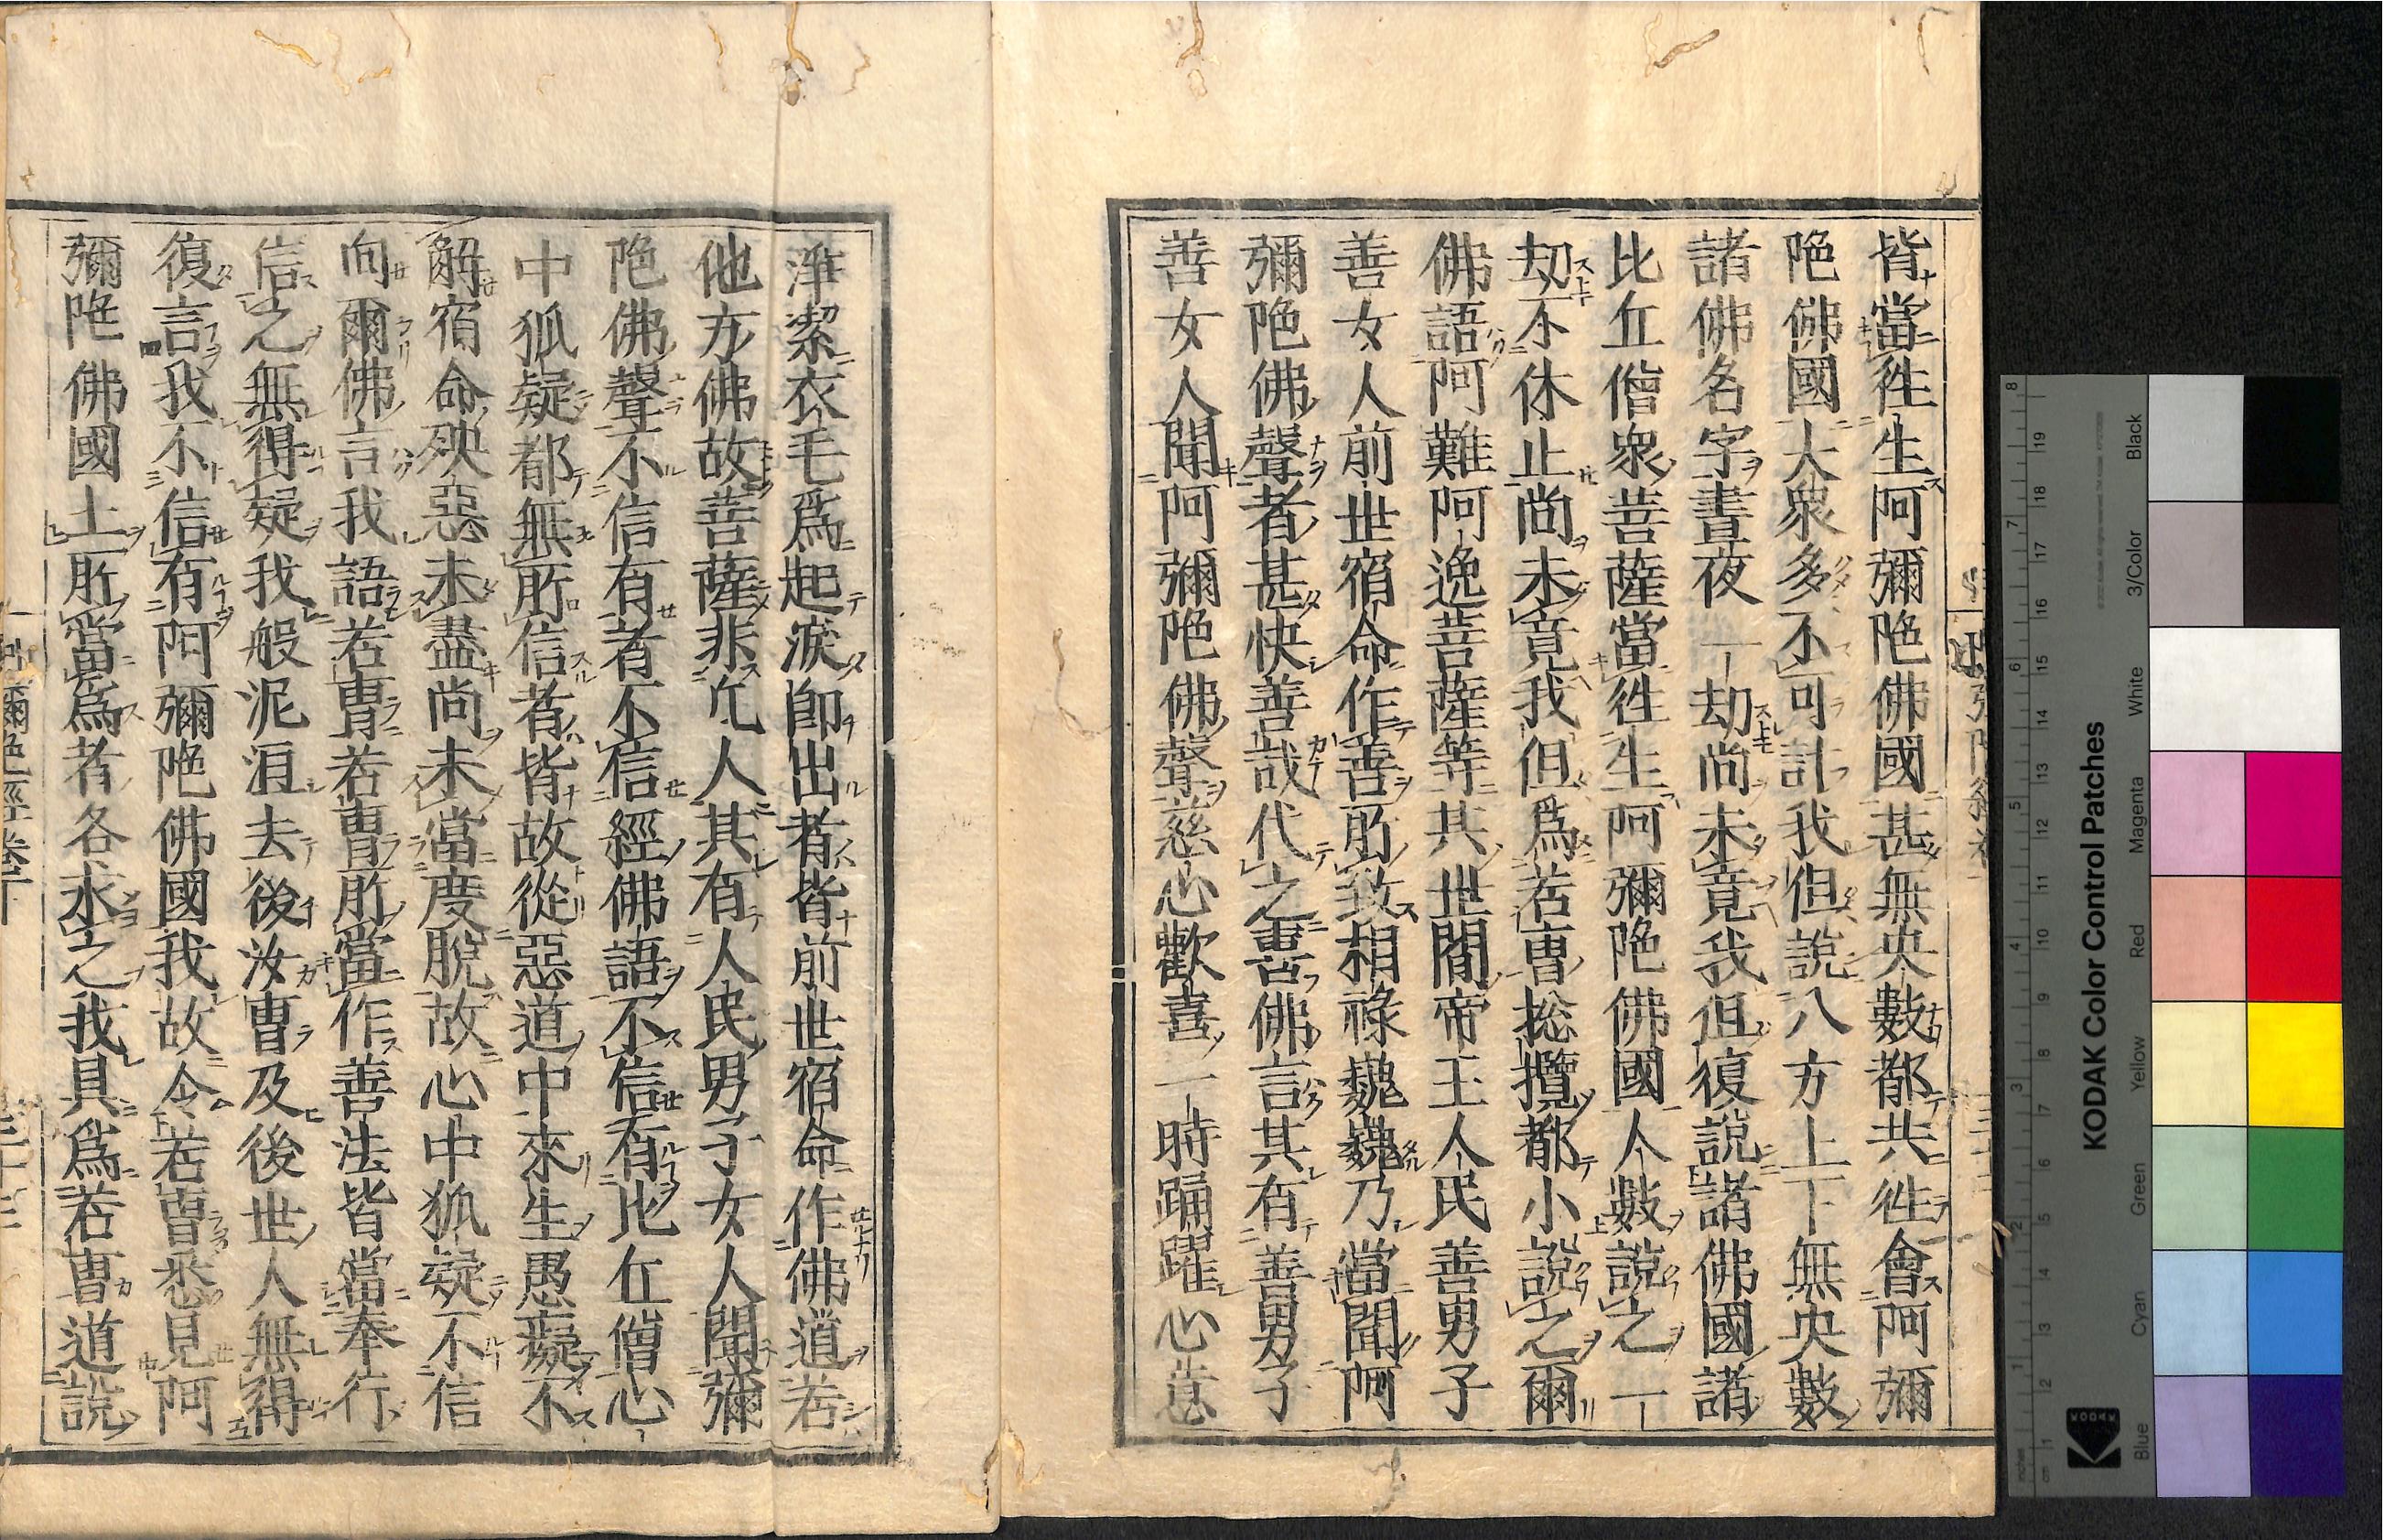 皆當徃生阿彌陁佛國甚無央數都共徃會阿彌
陁佛國大衆多不可計我但説八方上下無央數
諸佛名字晝夜一劫尚未竟我但復説諸佛國諸
比丘僧衆菩薩當徃生阿彌陁佛國人數説之一
劫不休止尚未竟我但爲若曺揔攬都小説之爾
佛語阿難阿逸菩薩等其世間帝王人民善男子
善女人前世宿命作善所致相祿巍巍乃當聞阿
彌陁佛聲者甚快善哉代之喜佛言其有善男子
善女人聞阿彌陁佛聲慈心歡喜一時踊躍心意
淨潔衣毛爲起淚即出者皆前世宿命作佛道若
他方佛故菩薩非凢人其有人民男子女人聞彌
陁佛聲不信有者不信經佛語不信有比丘僧心
中狐疑都無所信者皆故從惡道中來生愚癡不
解宿命殃惡未盡尚未當度脫故心中狐疑不信
向爾佛言我語若曺若曺所當作善法皆當奉行
信之無得疑我般泥洹去後汝曺及後世人無得
復言我不信有阿彌陁佛國我故令若曺悉見阿
彌陁佛國土所當爲者各求之我具爲若曺道説
阿彌陁經卷下
三十三
KODAK Color Control Patches
Blue Cyan Green Yellow Red Magenta White 3/Color Black
KODAK